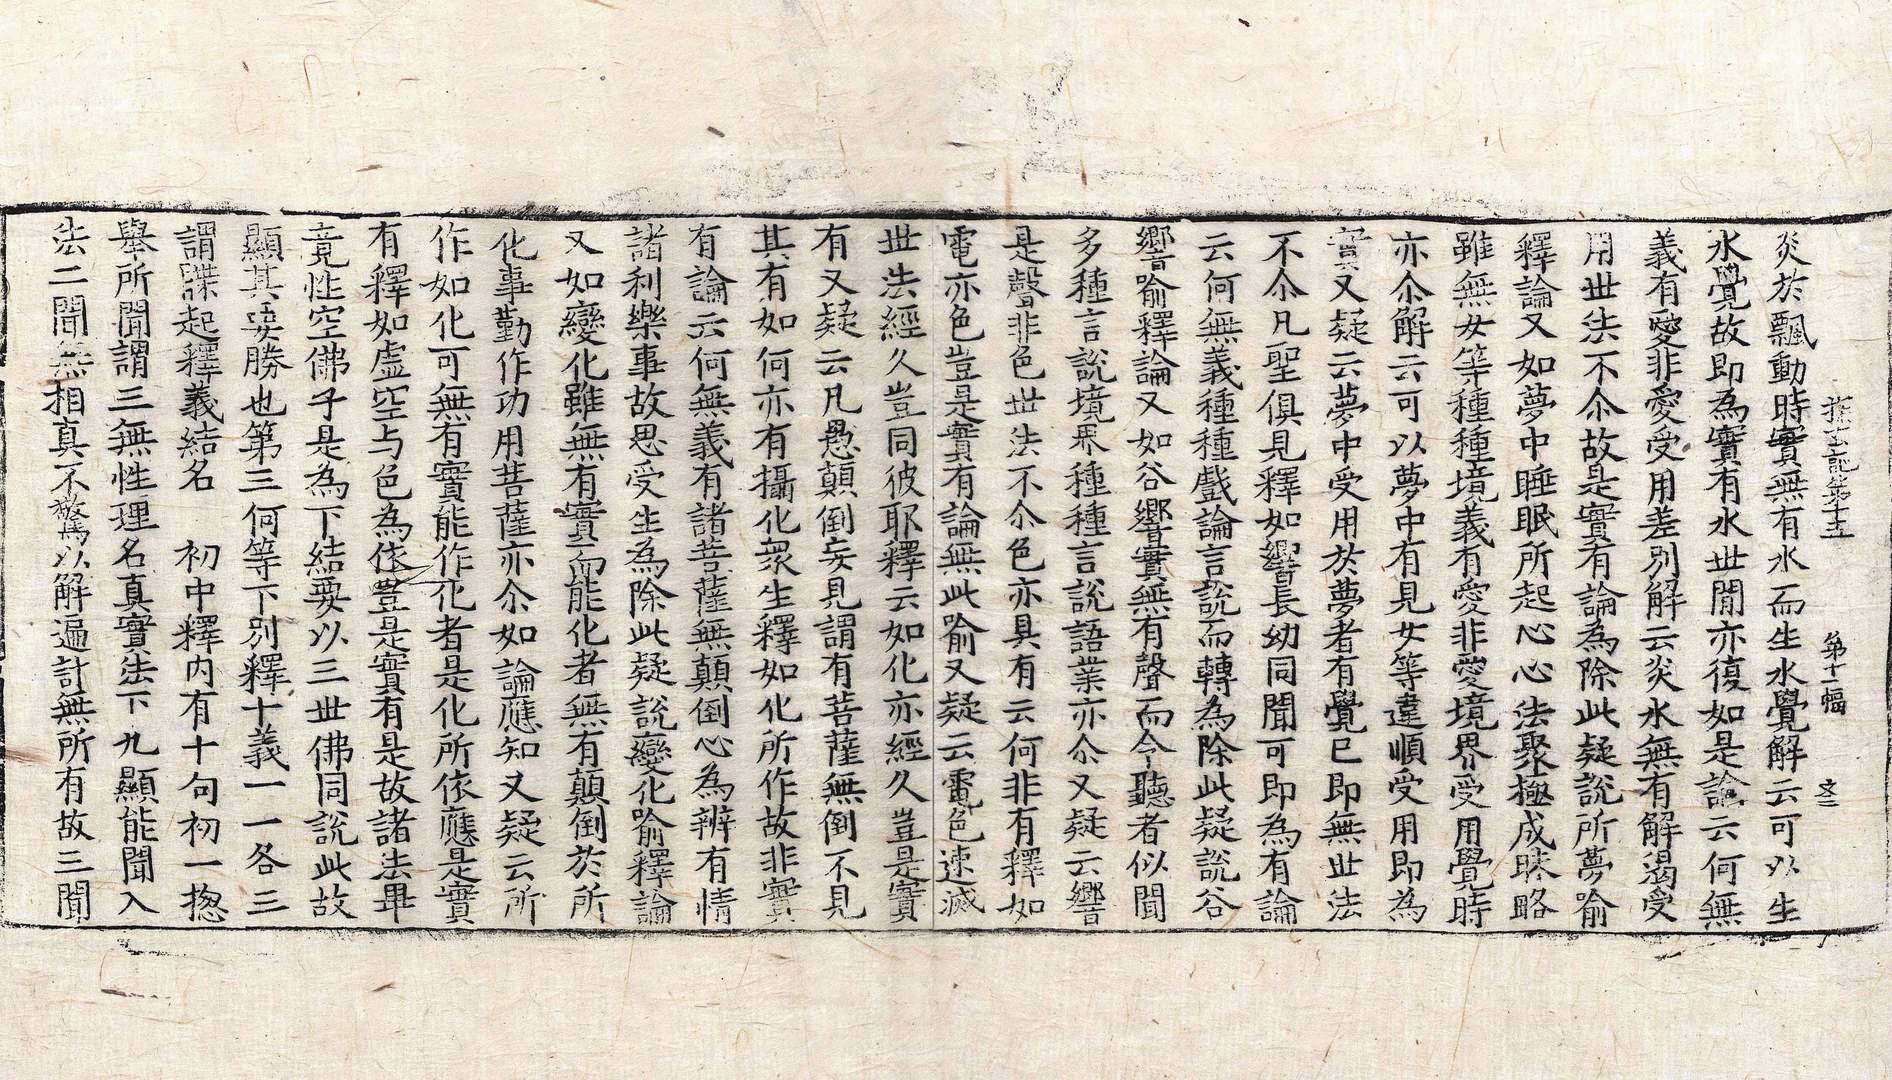 探玄記第十五　第十一幅　文二
炎於飄動時實無有水而生水覺解云可以生
水覺故即為實有水世間亦復如是論云何無
義有愛非愛受用差別解云炎水無有解渴受
用世法不尒故是實有論為除此疑說所夢喻
釋論又如夢中睡眠所起心心法聚極成昧略
雖無女等種種境義有愛非愛境界受用覺時
亦尒解云可以夢中有見女等違順受用即為
實又疑云夢中受用於夢者有覺已即無世法
不尒凡聖俱見釋如響長幼同聞可即為有論
云何無義種種戲論言說而轉為除此疑說谷
響喻釋論又如谷響實無有聲而令聽者似聞
多種言說境界種種言說語業亦尒又疑云響
是聲非色世法不尒色亦具有云何非有釋如
電亦色豈是實有論無此喻又疑云電色速滅
世法經久豈同彼耶釋云如化亦經久豈是實
有又疑云凡愚顛倒妄見謂有菩薩無倒不見
其有如何亦有攝化眾生釋如化所作故非實
有論云何無義有諸菩薩無顛倒心為辨有情
諸利樂事故思受生為除此疑說變化喻釋論
又如變化雖無有實而能化者無有顛倒於所
化事勤作功用菩薩亦尒如論應知又疑云所
作如化可無有實能作化者是化所依應是實
有釋如虛空与色為依豈是實有是故諸法畢
竟性空佛子是為下結要以三世佛同說此故
顯其要勝也第三何等下別釋十義一一各三
謂牒起釋義結名　初中釋内有十句初一揔
舉所聞謂三無性理名真實法下九顯能聞入
法二聞無相真不驚以解遍計無所有故三聞